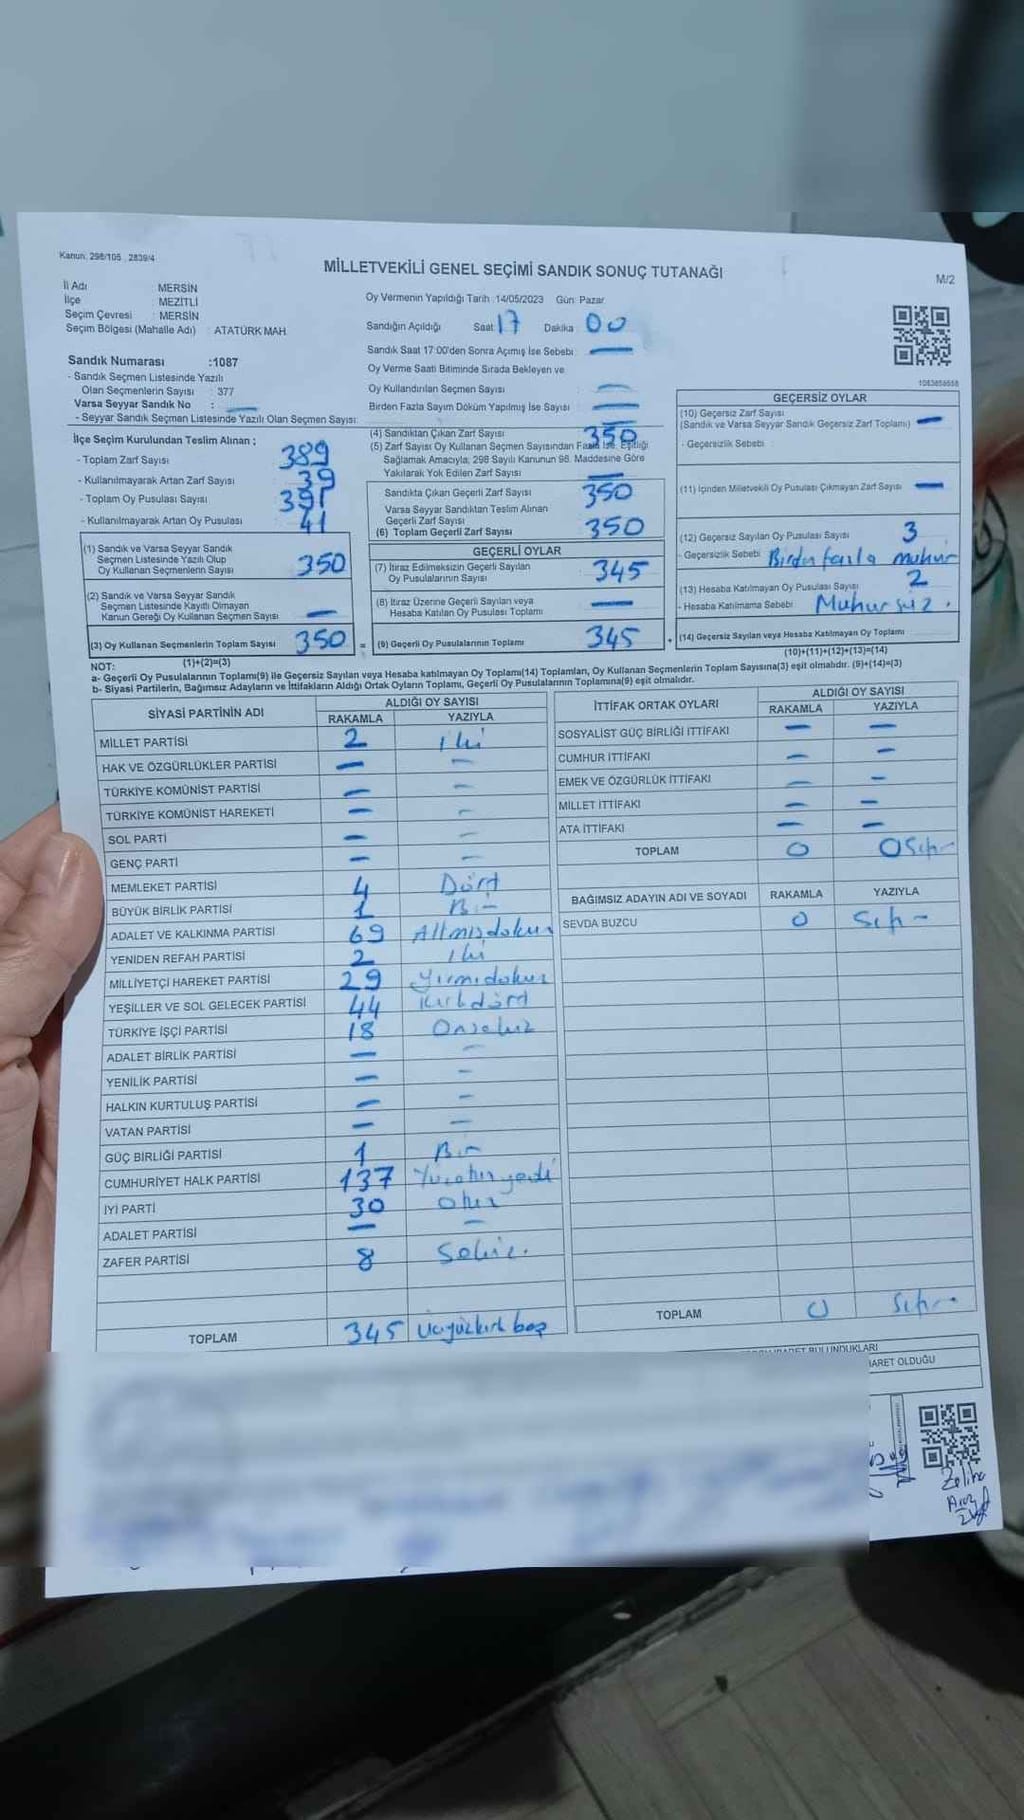 Kanun: 298/105 , 2839/4
MİLLETVEKİLİ GENEL SEÇİMİ SANDIK SONUÇ TUTANAĞI
M/2
İl Adı MERSİN
İlçe MEZİTLİ
Seçim Çevresi : MERSİN
Seçim Bölgesi (Mahalle Adı) : ATATÜRK MAH.
Oy Vermenin Yapıldığı Tarih :14/05/2023 Gün: Pazar
Sandığın Açıldığı Saat 17 Dakika 00
Sandık Saat 17:00'den Sonra Açımış İse Sebebi : —
Oy Verme Saati Bitiminde Sırada Bekleyen ve
Oy Kullandırılan Seçmen Sayısı —
Birden Fazla Sayım Döküm Yapılmış İse Sayısı —
Sandık Numarası :1087
- Sandık Seçmen Listesinde Yazılı
Olan Seçmenlerin Sayısı : 377
Varsa Seyyar Sandık No : —
- Seyyar Sandık Seçmen Listesinde Yazılı Olan Seçmen Sayısı:
İlçe Seçim Kurulundan Teslim Alınan ;
- Toplam Zarf Sayısı 389
- Kullanılmayarak Artan Zarf Sayısı 39
- Toplam Oy Pusulası Sayısı 391
- Kullanılmayarak Artan Oy Pusulası 41
(1) Sandık ve Varsa Seyyar Sandık
Seçmen Listesinde Yazılı Olup
Oy Kullanan Seçmenlerin Sayısı 350
(2) Sandık ve Varsa Seyyar Sandık
Seçmen Listesinde Kayıtlı Olmayan
Kanun Gereği Oy Kullanan Seçmen Sayısı —
(3) Oy Kullanan Seçmenlerin Toplam Sayısı 350
(1)+(2)=(3)
(4) Sandıktan Çıkan Zarf Sayısı 350
(5) Zarf Sayısı Oy Kullanan Seçmen Sayısından Fazla İse, Eşitliği
Sağlamak Amacıyla, 298 Sayılı Kanunun 98. Maddesine Göre
Yakılarak Yok Edilen Zarf Sayısı —
Sandıkta Çıkan Geçerli Zarf Sayısı 350
Varsa Seyyar Sandıktan Teslim Alınan
Geçerli Zarf Sayısı
(6) Toplam Geçerli Zarf Sayısı 350
GEÇERLİ OYLAR
(7) İtiraz Edilmeksizin Geçerli Sayılan
Oy Pusulalarının Sayısı 345
(8) İtiraz Üzerine Geçerli Sayılan veya
Hesaba Katılan Oy Pusulası Toplamı —
= (9) Geçerli Oy Pusulalarının Toplamı 345 +
1083858558
GEÇERSİZ OYLAR
(10) Geçersiz Zarf Sayısı
(Sandık ve Varsa Seyyar Sandık Geçersiz Zarf Toplamı) —
- Geçersizlik Sebebi :
(11) İçinden Milletvekili Oy Pusulası Çıkmayan Zarf Sayısı —
(12) Geçersiz Sayılan Oy Pusulası Sayısı 3
- Geçersizlik Sebebi Birden fazla mühür
(13) Hesaba Katılmayan Oy Pusulası Sayısı 2
- Hesaba Katılmama Sebebi Mühürsüz.
(14) Geçersiz Sayılan veya Hesaba Katılmayan Oy Toplamı
(10)+(11)+(12)+(13)=(14)
NOT:
a- Geçerli Oy Pusulalarının Toplamı(9) ile Geçersiz Sayılan veya Hesaba katılmayan Oy Toplamı(14) Toplamları, Oy Kullanan Seçmenlerin Toplam Sayısına(3) eşit olmalıdır. (9)+(14)=(3)
b- Siyasi Partilerin, Bağımsız Adayların ve İttifakların Aldığı Ortak Oyların Toplamı, Geçerli Oy Pusulalarının Toplamına(9) eşit olmalıdır.
SİYASİ PARTİNİN ADI ALDIĞI OY SAYISI
RAKAMLA YAZIYLA
MİLLET PARTİSİ 2 İki
HAK VE ÖZGÜRLÜKLER PARTİSİ — —
TÜRKİYE KOMÜNİST PARTİSİ — —
TÜRKİYE KOMÜNİST HAREKETİ — —
SOL PARTİ — —
GENÇ PARTİ — —
MEMLEKET PARTİSİ 4 Dört
BÜYÜK BİRLİK PARTİSİ 1 Bir
ADALET VE KALKINMA PARTİSİ 69 Altmışdokuz
YENİDEN REFAH PARTİSİ 2 İki
MİLLİYETÇİ HAREKET PARTİSİ 29 Yirmidokuz
YEŞİLLER VE SOL GELECEK PARTİSİ 44 Kırkdört
TÜRKİYE İŞÇİ PARTİSİ 18 Onsekiz
ADALET BİRLİK PARTİSİ — —
YENİLİK PARTİSİ — —
HALKIN KURTULUŞ PARTİSİ — —
VATAN PARTİSİ — —
GÜÇ BİRLİĞİ PARTİSİ 1 Bir
CUMHURİYET HALK PARTİSİ 137 Yüzotuzyedi
İYİ PARTİ 30 Otuz
ADALET PARTİSİ — —
ZAFER PARTİSİ 8 Sekiz.
TOPLAM 345 Üçyüzkırk beş
İTTİFAK ORTAK OYLARI ALDIĞI OY SAYISI
RAKAMLA YAZIYLA
SOSYALİST GÜÇ BİRLİĞİ İTTİFAKI — —
CUMHUR İTTİFAKI — —
EMEK VE ÖZGÜRLÜK İTTİFAKI — —
MİLLET İTTİFAKI — —
ATA İTTİFAKI — —
TOPLAM 0 0 Sıfır
BAĞIMSIZ ADAYIN ADI VE SOYADI RAKAMLA YAZIYLA
SEVDA BUZCU 0 Sıfır
TOPLAM 0 Sıfır
BULUNDUKLARI
İARET OLDUĞU
Zeliha